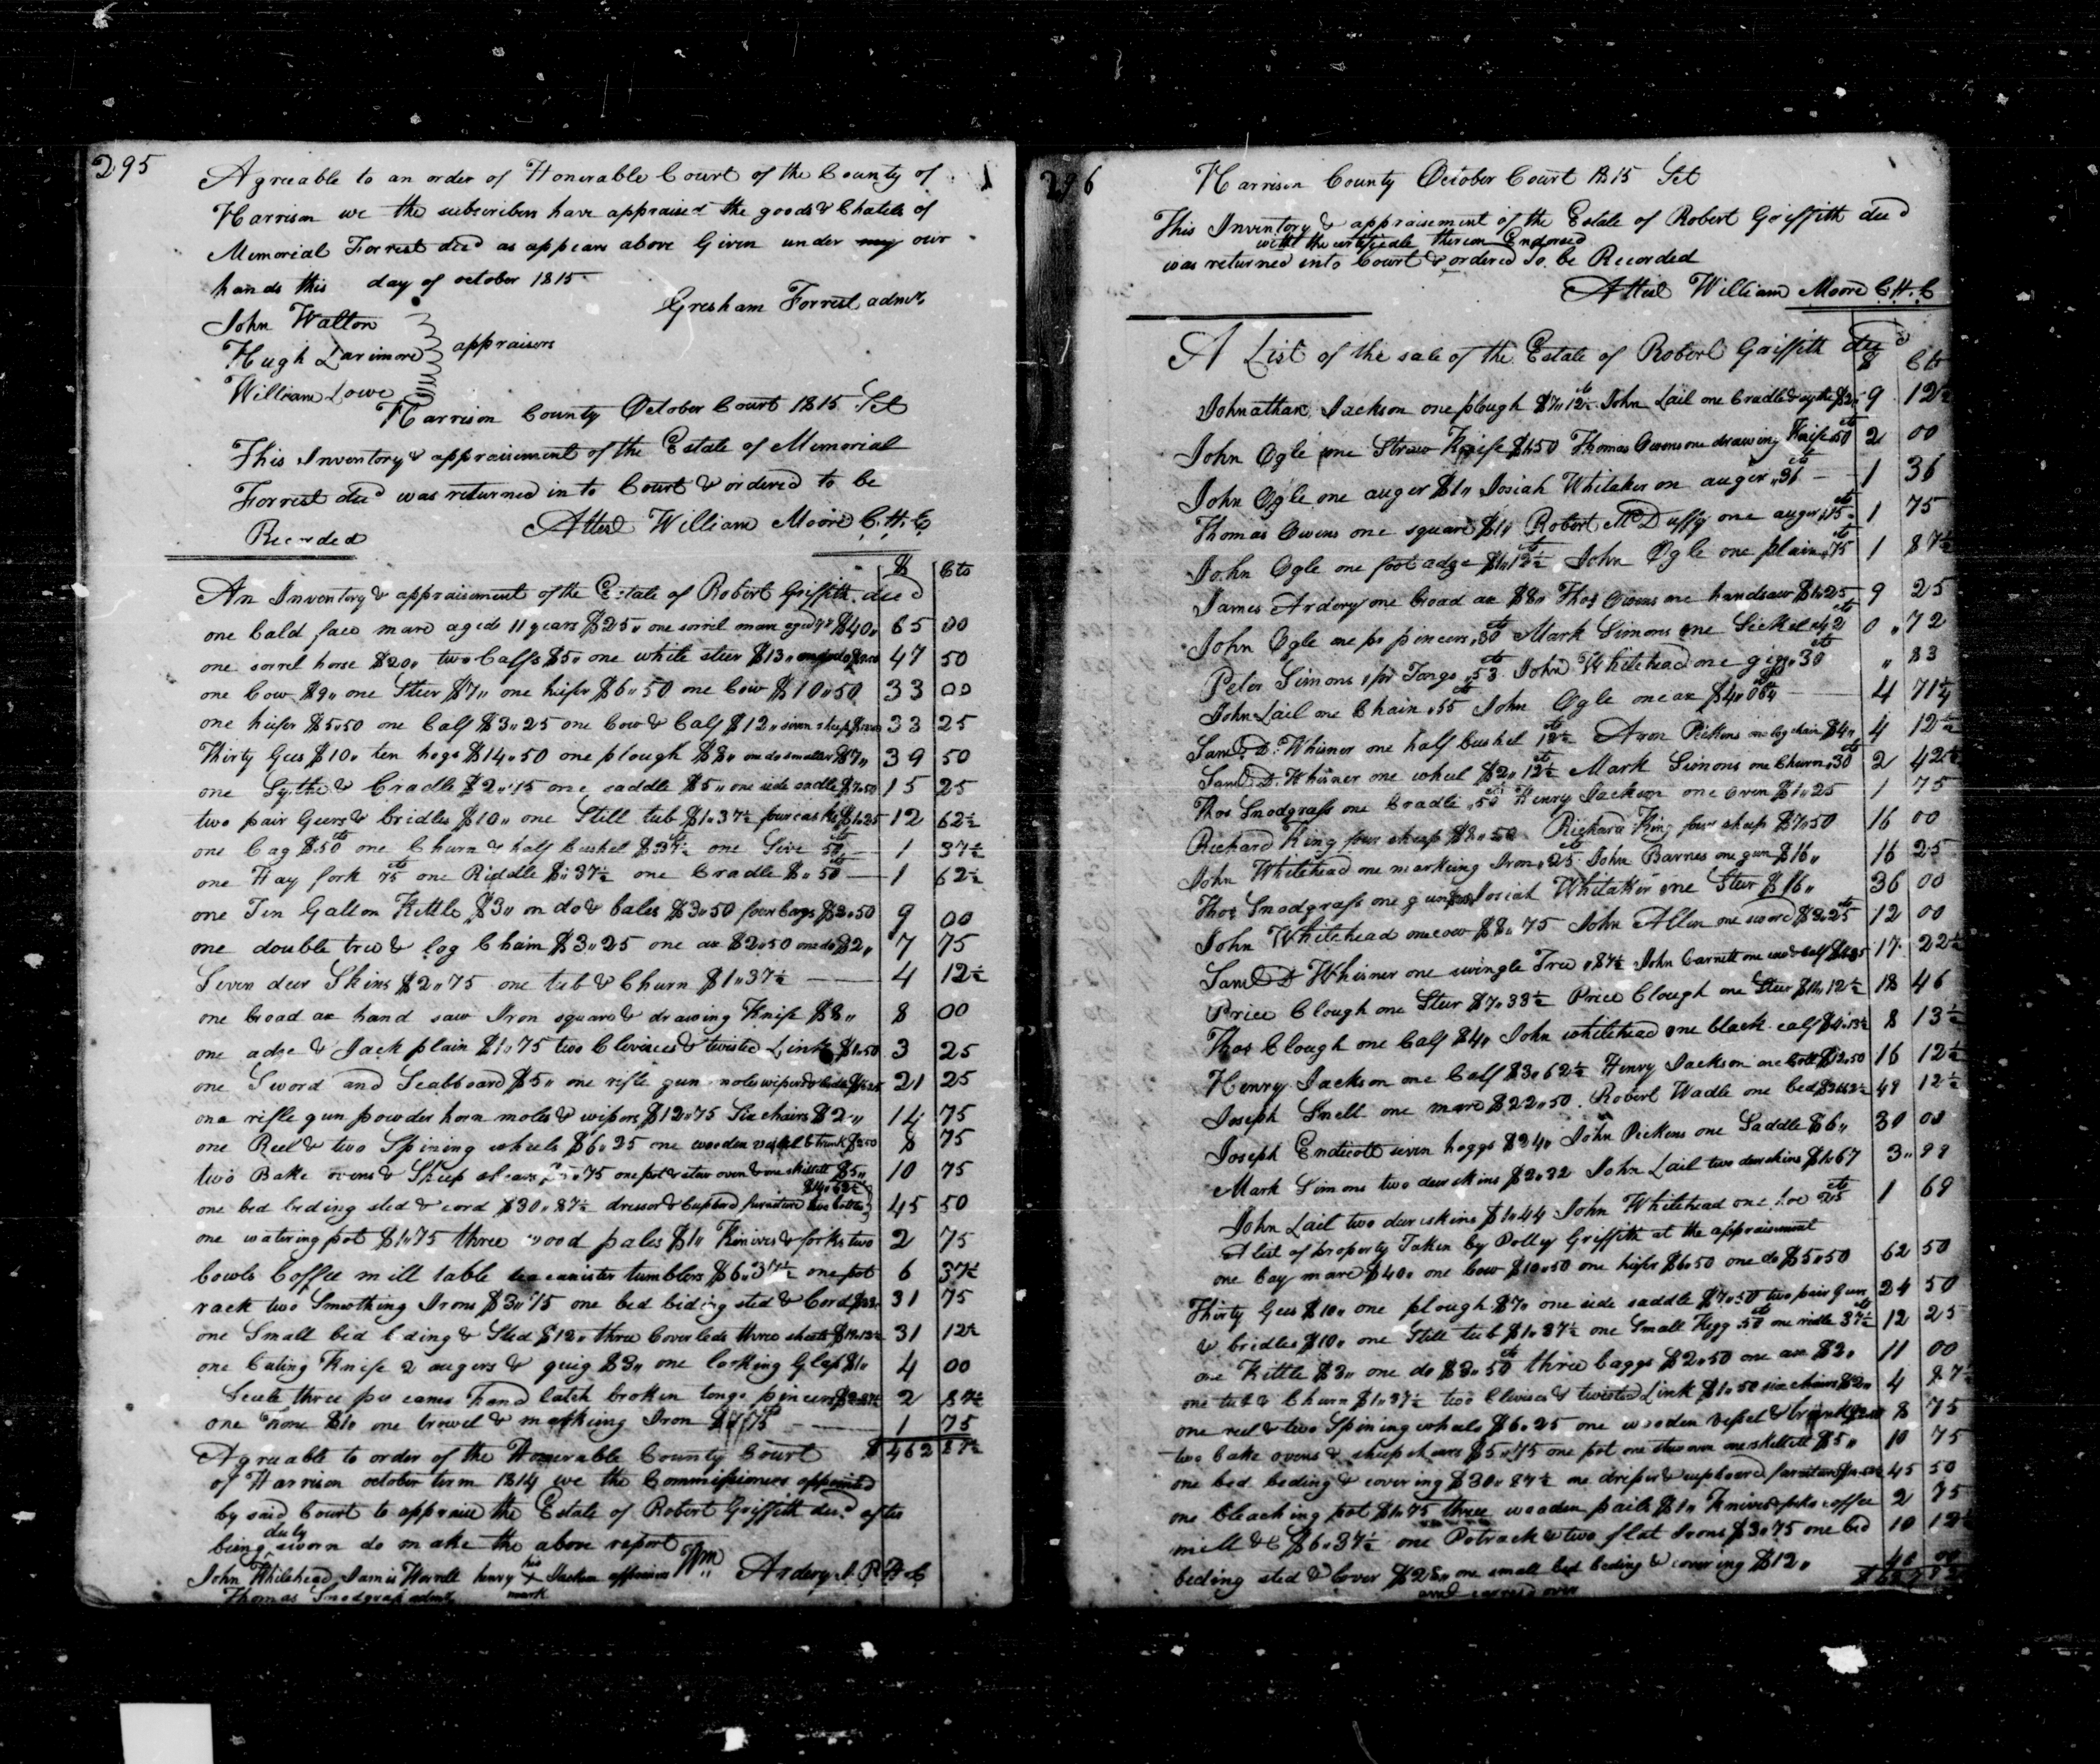 295
Agreeable to an order of Honerable Court of the County of
Harrison we the subscribers have appraised the goods & Chatels of
Memorial Forrest decd as appears above Given under my our
hands this day of october 1815
Gresham Forrest admr
John Walton
Hugh Larimore appraisers
William Lowe
Harrison County October Court 1815 Sct
This Inventory & appraisement of the Estate of Memorial
Forrest decd was returned in to Court & ordered to be
Recorded Attest William Moore C.H.C
$ Cts
An Inventory & appraisement of the Estate of Robert Griffith decd
one bald face mare aged 11 years $25,, one sorrel mare aged $40,, 65 00
one sorrel horse $20,, two Calfs $5,, one white steer $13,, 47 50
one Cow $9,, one Steer $7,, one hiefer $6,,50 one Cow $10,,50 33 00
one hiefer $5,,50 one Calf $3,,25 one Cow & Calf $12,, seven sheep 33 25
Thirty Gees $10,, ten hogs $14,,50 one plough $8,, on do smaller $7,, 39 50
one Sythe & Cradle $2,,75 one saddle $5,, one side sadle $7,,50 15 25
two pair Geers & bridles $10,, one Still tub $1,,37½ four casks $1,,25 12 62½
one bag $,,50 cts one Churn & half bushel $,,37½ one Sive 50 cts 1 37½
one Hay fork 75 cts one Riddle $,,37½ one Cradle $,,50 1 62½
one Ten Gallon Kettle $3,, on do & bales $3,,50 four bags $2,,50 9 00
one double tree & log Chain $3,,25 one ax $2,,50 one do $2,, 7 75
Seven deer Skins $2,,75 one tub & Churn $1,,37½ 4 12½
one broad ax hand saw Iron square & drawing Knife $8,, 8 00
one adze & Jack plain $1,,75 two Clevices & twisted Link $1,,50 3 25
one Sword and Scabboard $5,, one rifle gun moles wipers & 21 25
one rifle gun powder horn moles & wipers $12,,75 Six chairs $2,, 14 75
one Reel & two Spining wheels $6,,25 one wooden vessel & trunk $2,,50 8 75
two Bake ovens & Sheep shears $5,,75 one pot & stew oven & one skillett $5,, 10 75
one bed beding sted & cord $30,,87½ dresser & Cupbord furniture two bottles $14,,62½ 45 50
one watering pot $1,,75 three wood pales $1,, Knives & forks two 2 75
bowls Coffee mill table tea canister tumblers $6,,37½ one pot 6 37½
rack two Smoothing Irons $3,,75 one bed biding sted & Cord 31 75
one Small bed beding & Sted $12,, three Coverleds three sheets $19,,12½ 31 12½
one Cuting Knife 2 augers & $3,, one looking Glass $1,, 4 00
three hand latch broken tongs pincers 2 87½
one $1,, one trowel & marking Iron 75 1 75
Agreeable to order of the Honerable County Court $ 462 87½
of Harrison october term 1814 we the Commissioners appointed
by said Court to appraise the Estate of Robert Griffith decd after
being duly sworn do make the above report
John Whitehead James Worrell henry his X mark Jackson appraisers Wm Ardery J.P.H.C
Thomas Snodgrass admr
296
Harrison County October Court 1815 Sct
This Inventory & appraisement of the Estate of Robert Griffith decd
with the certificate thereon Endorsed
was returned into Court & ordered to be Recorded
Attest William Moore C.H.C
A List of the sale of the Estate of Robert Griffith decd
$ Cts
Johnathan Jackson one plough $7,,12½ John Lail one Cradle & sythe $2,, 9 12½
John Ogle one Straw Knife $1,,50 Thomas Owens one drawing Knife 50 cts 2 00
John Ogle one auger $1,, Josiah Whitaker on auger ,,36 cts 1 36
Thomas Owens one square $1,, Robert McDuffy one auger ,,75 cts 1 75
John Ogle one foot adze $1,,12½ John Ogle one plain ,,75 cts 1 87½
James Ardery one broad ax $8,, Thos Owens one handsaw $1,,25 9 25
John Ogle one pr pincers ,,30 cts Mark Simons one Sickel ,,42 cts 0 ,,72
Peter Simons 1 pr Tongs ,,53 cts John Whitehead one ,,30 cts ,, 83
John Lail one Chain ,,55 cts John Ogle one ax $4,, 4 71¼
Saml D. Whisner one half bushel 12½ cts Aron Pickens one log chain $4,, 4 12½
Saml D. Whisner one wheel $2,,12½ Mark Simons one Churn ,,30 cts 2 42½
Thos Snodgrass one Cradle ,,50 cts Henry Jackson one oven $1,,25 1 75
Richard King four sheep $8,,50 Richard King four sheep $7,,50 16 00
John Whitehead one markeing Iron ,,25 cts John Barnes one gun $16,, 16 25
Thos Snodgrass one gun Josiah Whitaker one Steer $16,, 36 00
John Whitehead one cow $8,,75 John Allen one sword $3,,25 cts 12 00
Saml D Whisner one swingle Tree ,,87½ John Carnett one cow & calf 17 22½
Price Clough one Steer $7,,33½ Price Clough one Steer $11,,12½ 18 46
Thos Clough one Calf $4,, John whitehead one black calf $4,,13½ 8 13½
Henry Jackson one Calf $3,,62½ Henry Jackson one Colt $12,,50 16 12½
Joseph Snell one mare $22,,50 Robert Wadle one bed $26,,62½ 49 12½
Joseph Endicott seven hoggs $24,, John Pickens one Saddle $6,, 30 00
Mark Simons two deer skins $2,,32 John Lail two deer skins $1,,67 3,, 99
John Lail two deer skins $1,,44 John Whitehead one hoe 25 cts 1 69
A list of property Taken by Polly Griffith at the appraisement
one bay mare $40,, one Cow $10,,50 one hiefer $6,,50 one do $5,,50 62 50
Thirty Gees $10,, one plough $7,, one side saddle $7,,50 two pair Gears 24 50
& bridles $10,, one Still tub $1,,37½ one Small Kegg 50 cts one ridle 37½ cts 12 25
one Kittle $3,, one do $3,,50 cts three baggs $2,,50 one ax $2,, 11 00
one tub & Churn $1,,37½ two Clevices & twisted Link $1,,50 six chairs $2,, 4 87½
one reel & two Spining wheels $6,,25 one wooden vessel & trunk 8 75
two bake ovens & sheep shears $5,,75 one pot one stew oven one skillett $5,, 10 75
one bed beding & covering $30,,87½ one dresser & cupboard furniture 45 50
one bleaching pot $1,,75 three wooden pails $1,, Knives & forks coffee 2 75
mill &C $6,,37½ one Potrack & two flat Irons $3,,75 one bed 10 12½
beding sted & Cover $28,, one small bed beding & covering $12,, 40 00
carred over